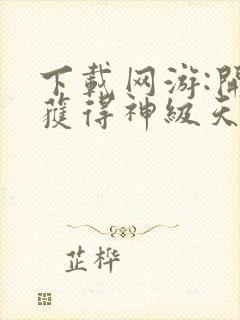 下載网游:開
獲得神級天
芷桦